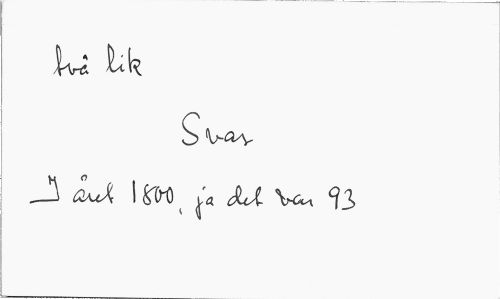 två lik
Svar
I året 1800, ja det var 93